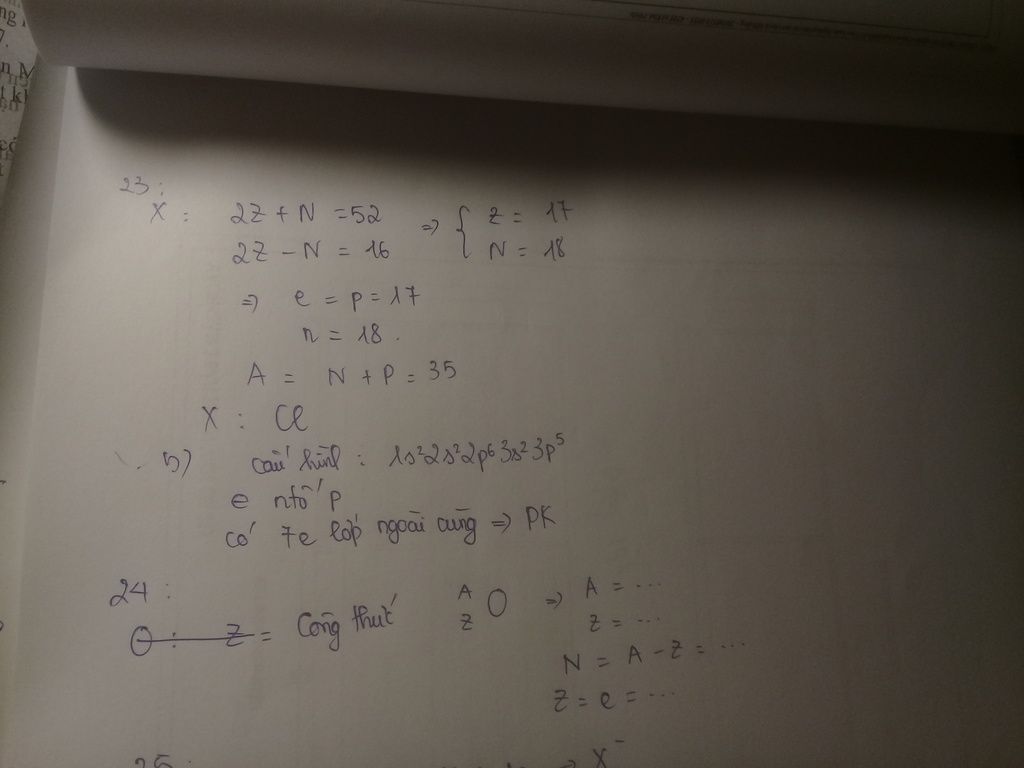 23:
X : 2Z + N = 52 ⇒ { Z = 17
2Z - N = 16 N = 18
⇒ e = p = 17
n = 18.
A = N + P = 35
X : Cl
b) cấu hình : 1s²2s²2p⁶3s²3p⁵
e ntố p
có 7e lớp ngoài cùng ⇒ PK
24 :
O : Z = Công thức ᴬ_Z O ⇒ A = ...
Z = ...
N = A - Z = ...
Z = e = ...
25 : ⇒ X⁻